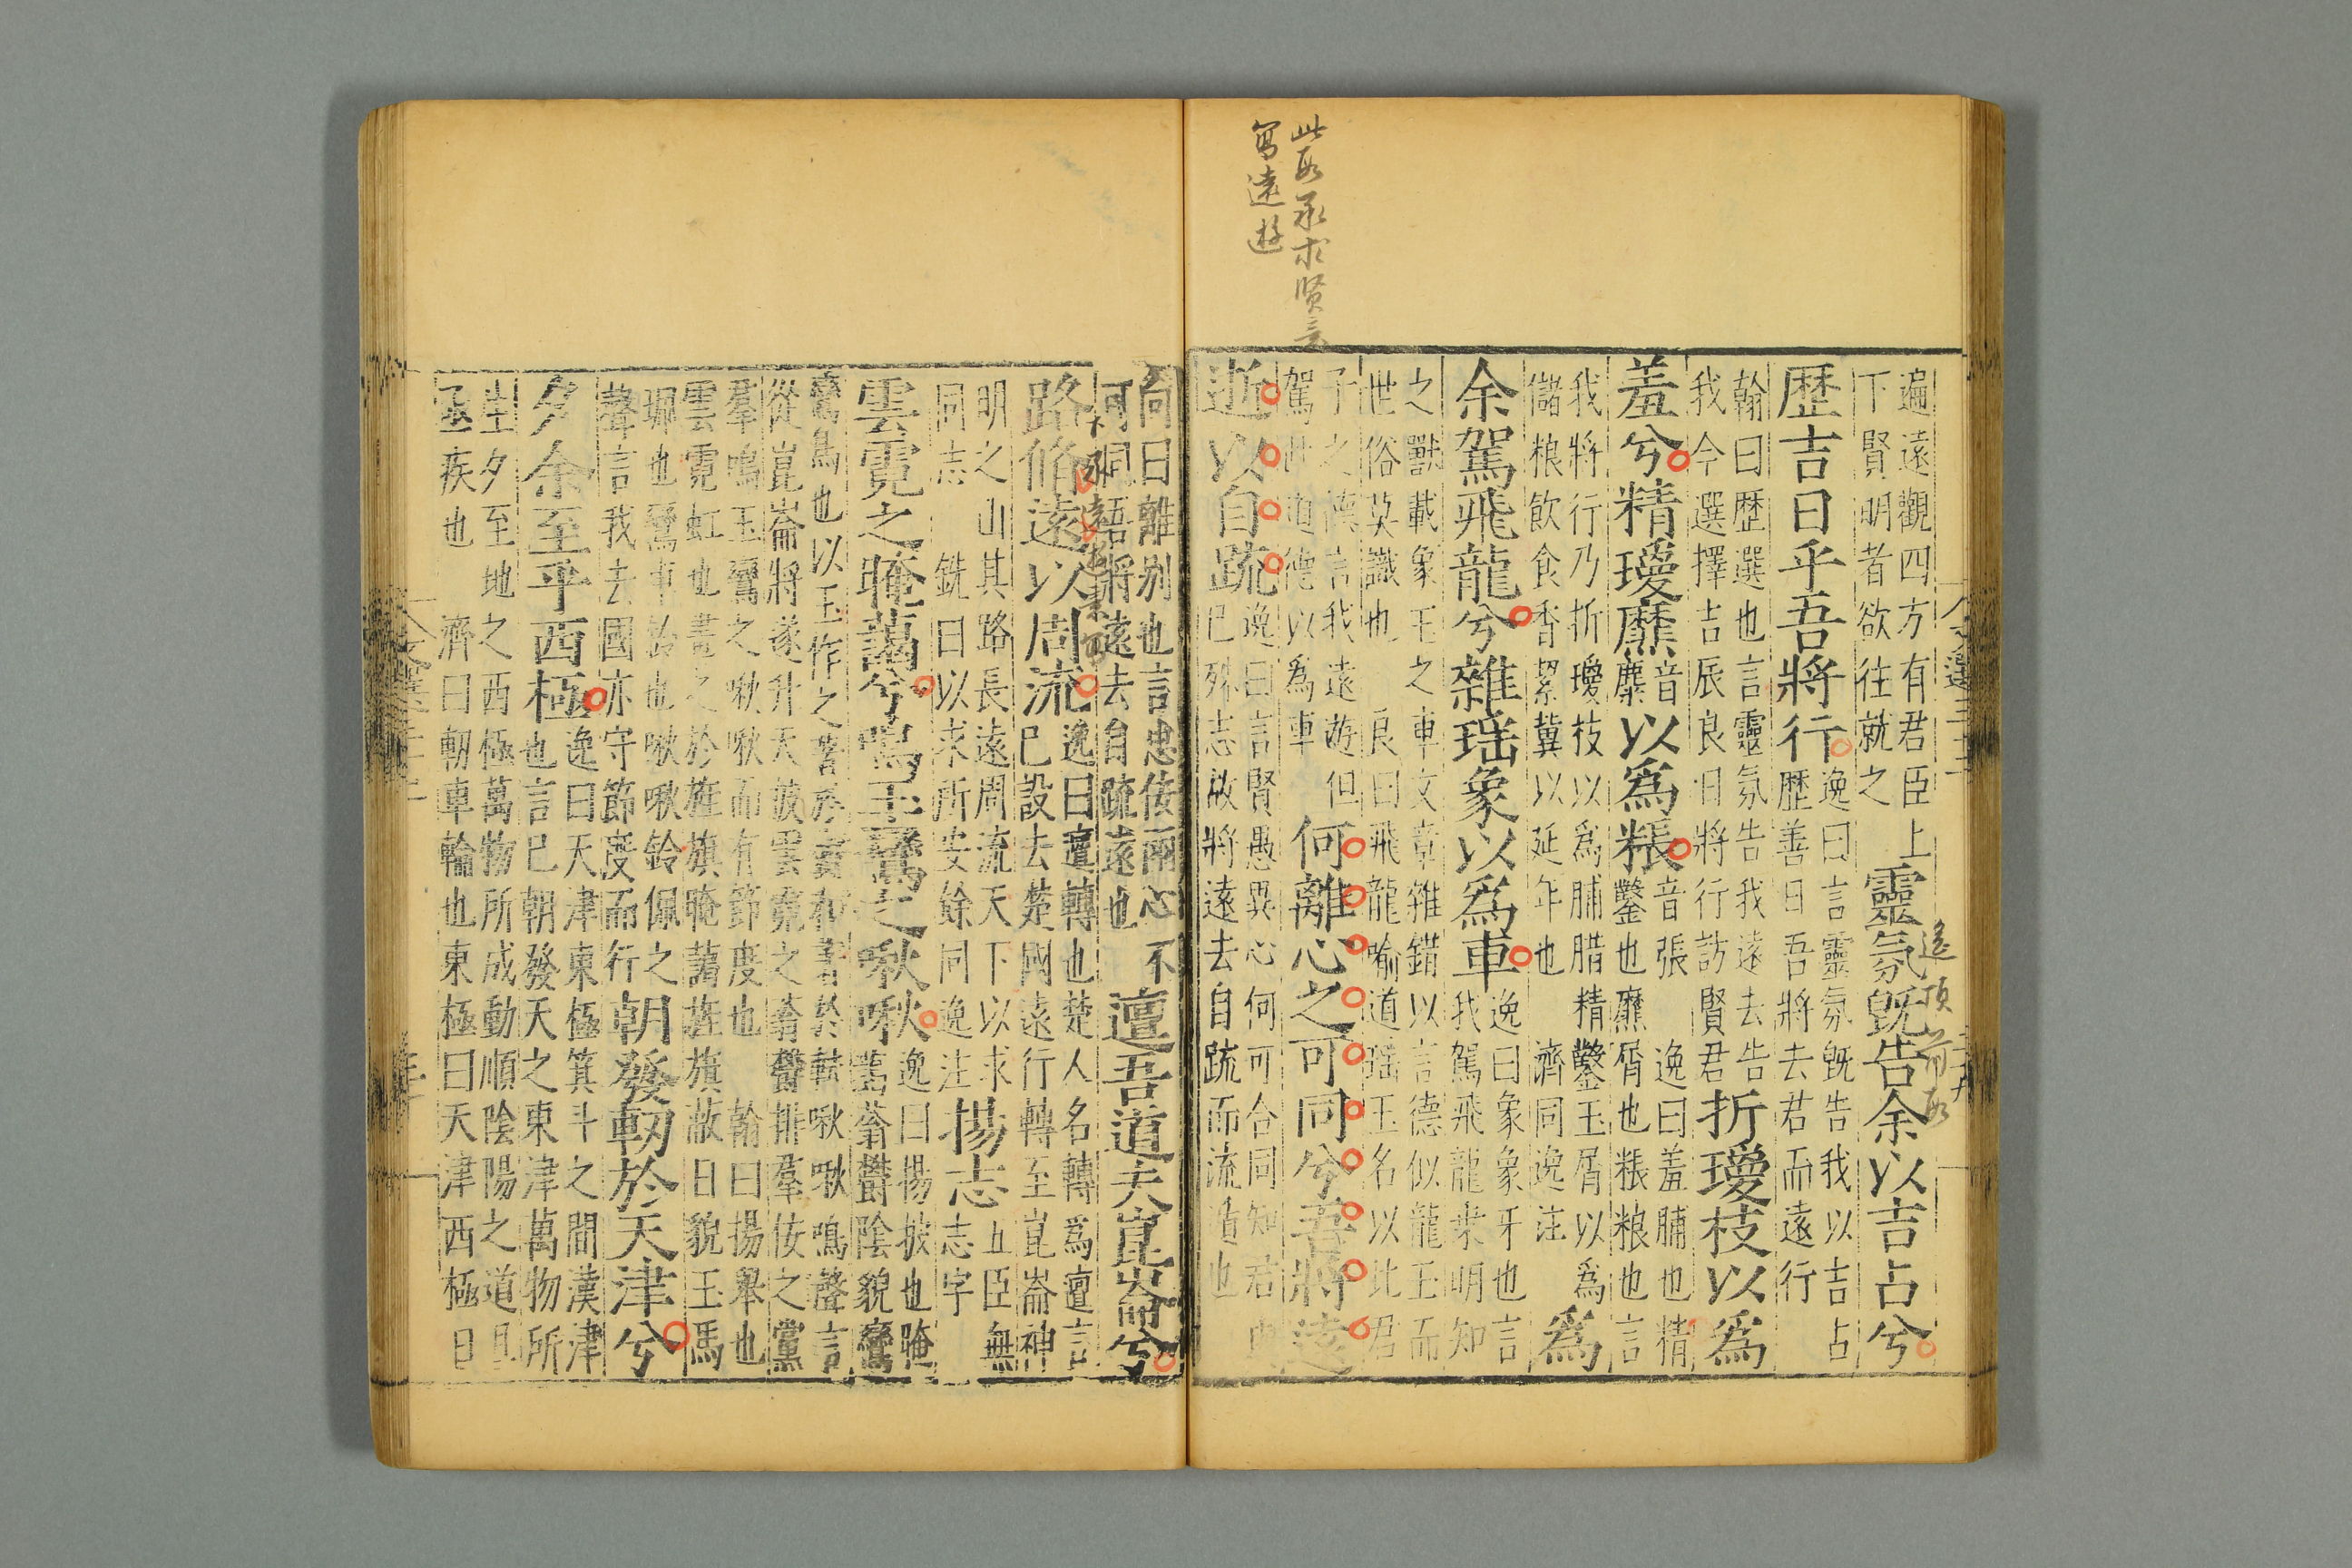 此段承求賢言
寫遠遊
遍遠觀四方有君臣上
下賢明者欲往就之
靈氛旣告余以吉占兮
遙頂前段
歷吉日乎吾將行
逸曰言靈氛旣告我以吉占
歷善日吾將去君而遠行
翰曰歷選也言靈氛告我遠去告
我今選擇吉辰良日將行訪賢君
折瓊枝以爲
羞兮精瓊爢
音
麋
以爲粻
音張
鑿也爢屑也粻粮也言
逸曰羞脯也精
我將行乃折瓊枝以爲脯腊精鑿玉屑以爲
儲粮飲食香絜冀以延年也
濟同逸注
爲
余駕飛龍兮雜瑶象以爲車
逸曰象象牙也言
我駕飛龍乘明知
之獸載象玉之車文章雜錯以言德似龍玉而
世俗莫識也
良曰飛龍喻道瑶玉名以比君
子之德言我遠遊但
駕此道德以爲車
何離心之可同兮吾將遠
逝以自疏
逸曰言賢愚異心何可合同知君與
已殊志故將遠去自疏而流遁也
向曰離别也言忠佞兩心不
可同語將遠去自疏遠也
邅吾道夫崑崙兮
路脩遠以周流
逸曰邅轉也楚人名轉爲邅言
已設去楚國遠行轉至崑崙神
明之山其路長遠周流天下以求
同志
銑曰以求所安餘同逸注
揚志
五臣無
志字
雲霓之晻藹兮鳴玉鸞之啾啾
逸曰揚披也晻
藹蓊鬱陰貌鸞
鸞鳥也以玉作之著於衡和著於軾啾啾鳴聲言
從崑崙將遂升天披雲霓之蓊鬱排羣佞之黨
羣鳴玉鸞之啾啾而有節度也
翰曰揚舉也
雲霓虹也畫之於旌旗晻藹旌旗蔽日貌玉馬
珮也鸞車鈴也啾啾鈴佩之
聲言我去國亦守節度而行
朝發軔於天津兮
夕余至乎西極
逸曰天津東極箕斗之間漢津
也言已朝發天之東津萬物所
生夕至地之西極萬物所成動順陰陽之道且
亟疾也
濟曰軔車輪也東極曰天津西極曰